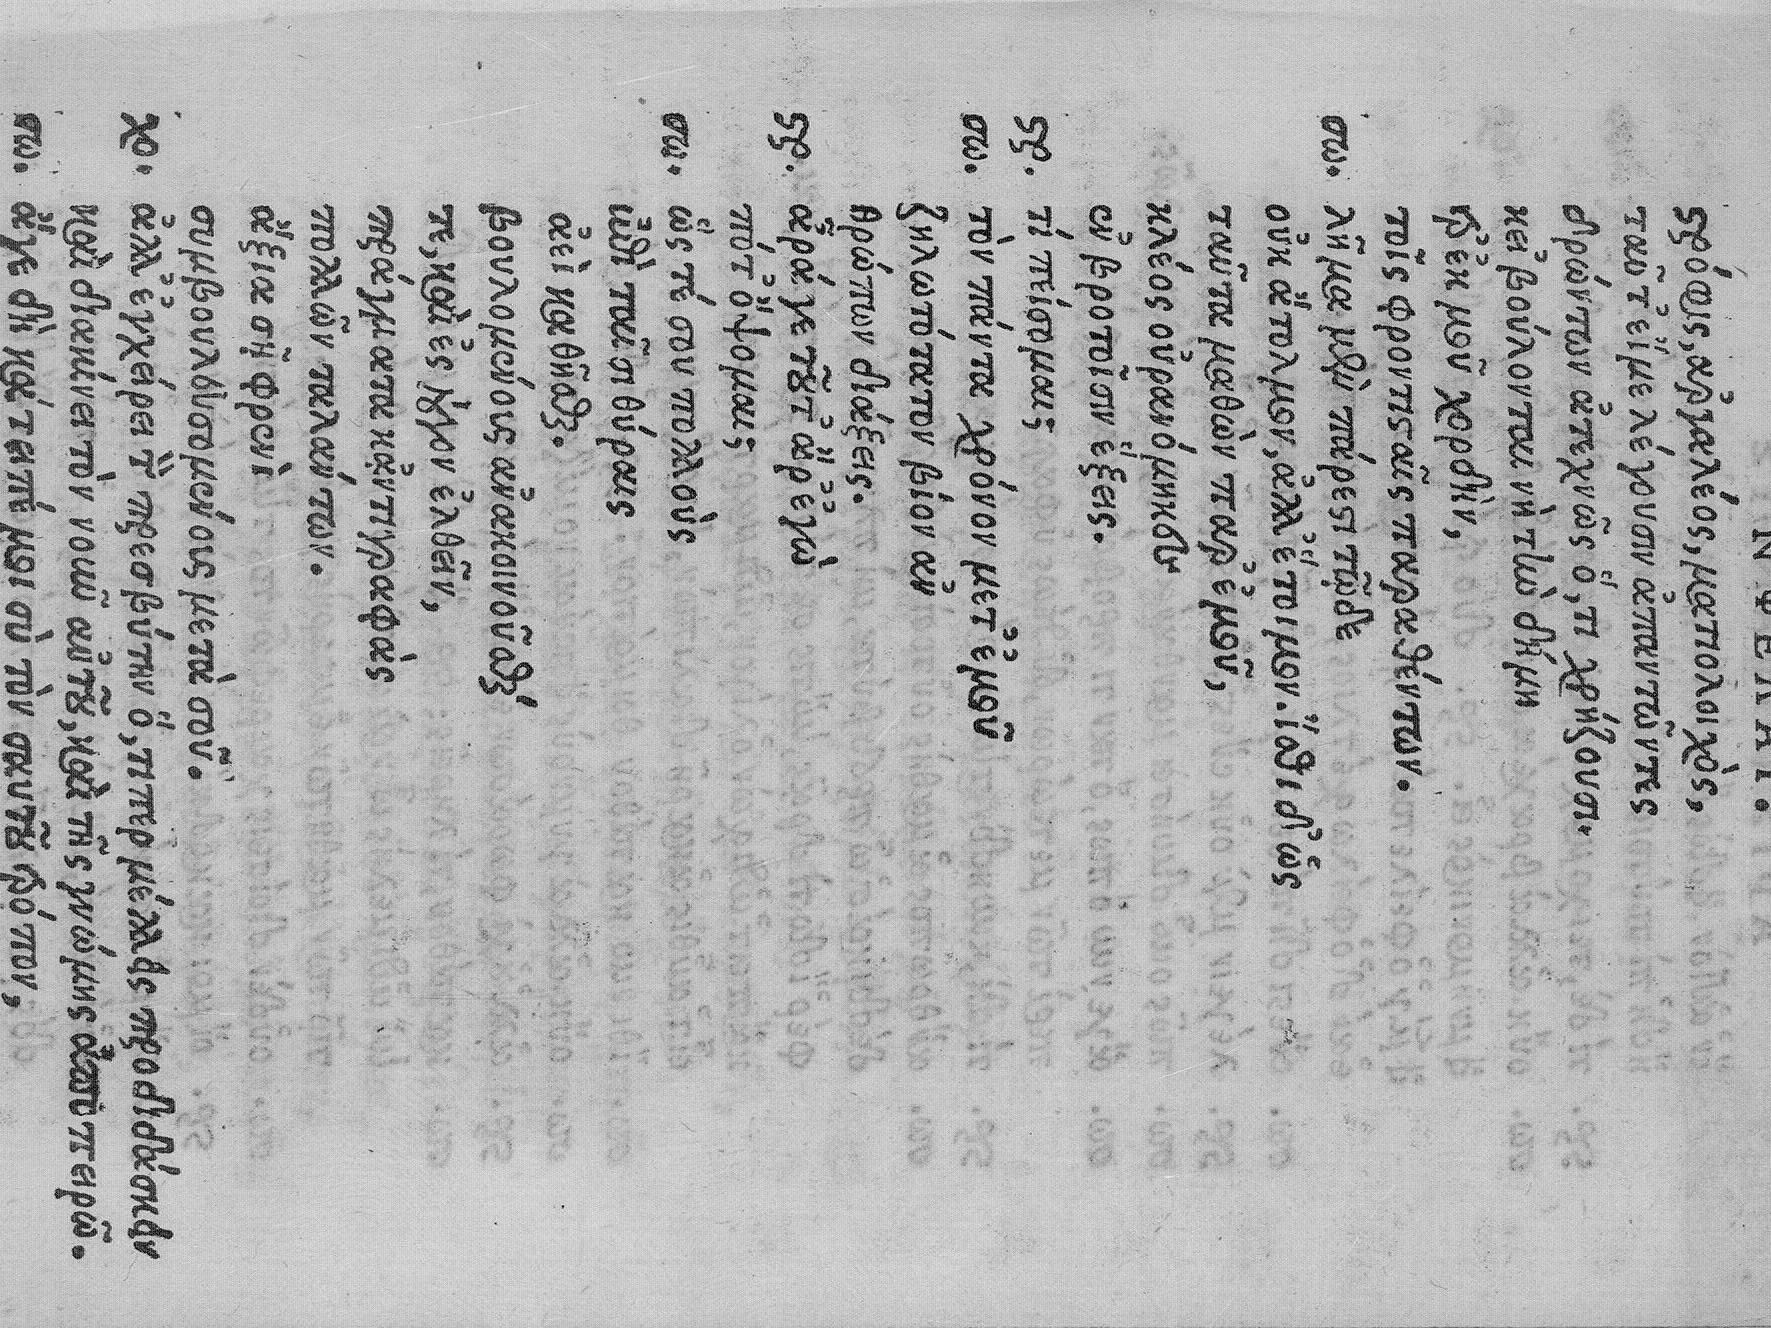 ΝΕΦΕΛΑΙ.
στρόφις, ἀργαλέος, ματτολοιχὸς.
ταῦτ' εἴ με λέγουσιν ἁπαντῶντες
δρώντων ἀτεχνῶς ὅ, τι χρῄζουσι.
κεἰ βούλονται νὴ τὴν δήμη
τρ᾽ ἔκ μου χορδὴν,
τοῖς φροντισταῖς παραθέντων.
σω. λῆμα μὲν πάρεστι τῷδέ γ᾽
οὐκ ἄτολμον, ἀλλ' ἕτοιμον. ἴσθι δ' ὡς
ταῦτα μαθὼν παρ' ἐμοῦ,
κλέος οὐρανόμηκες
ἐν βροτοῖσιν ἕξεις.
στρ. τί πείσομαι;
σω. τὸν πάντα χρόνον μετ' ἐμοῦ
ζηλωτότατον βίον ἀν
θρώπων διάξεις.
στρ. ἆρά γε τοῦτ' ἄρ' ἐγώ
ποτ' ὄψομαι;
σω. ὥς τέ σου πολλοὺς
ἐπὶ ταῖσι θύραις
ἀεὶ καθῆσθαι.
βουλομένους ἀνακοινοῦσθαί
τε, καὶ ἐς λόγον ἐλθεῖν,
πράγματα κἀντιγραφὰς
πολλῶν ταλάντων.
ἄξια σῇ φρενὶ
συμβουλευσομένους μετὰ σοῦ.
χο. ἀλλ' ἐγχείρει τ' πρεσβύτην ὅ, τι περ μέλλεις προδιδάσκειν
καὶ διακίνει τὸν νοῦν αὐτοῦ, καὶ τῆς γνώμης ἀποπειρῶ.
σω. ἄγε δὴ κάτειπέ μοι σὺ τὸν σαυτοῦ τρόπον,